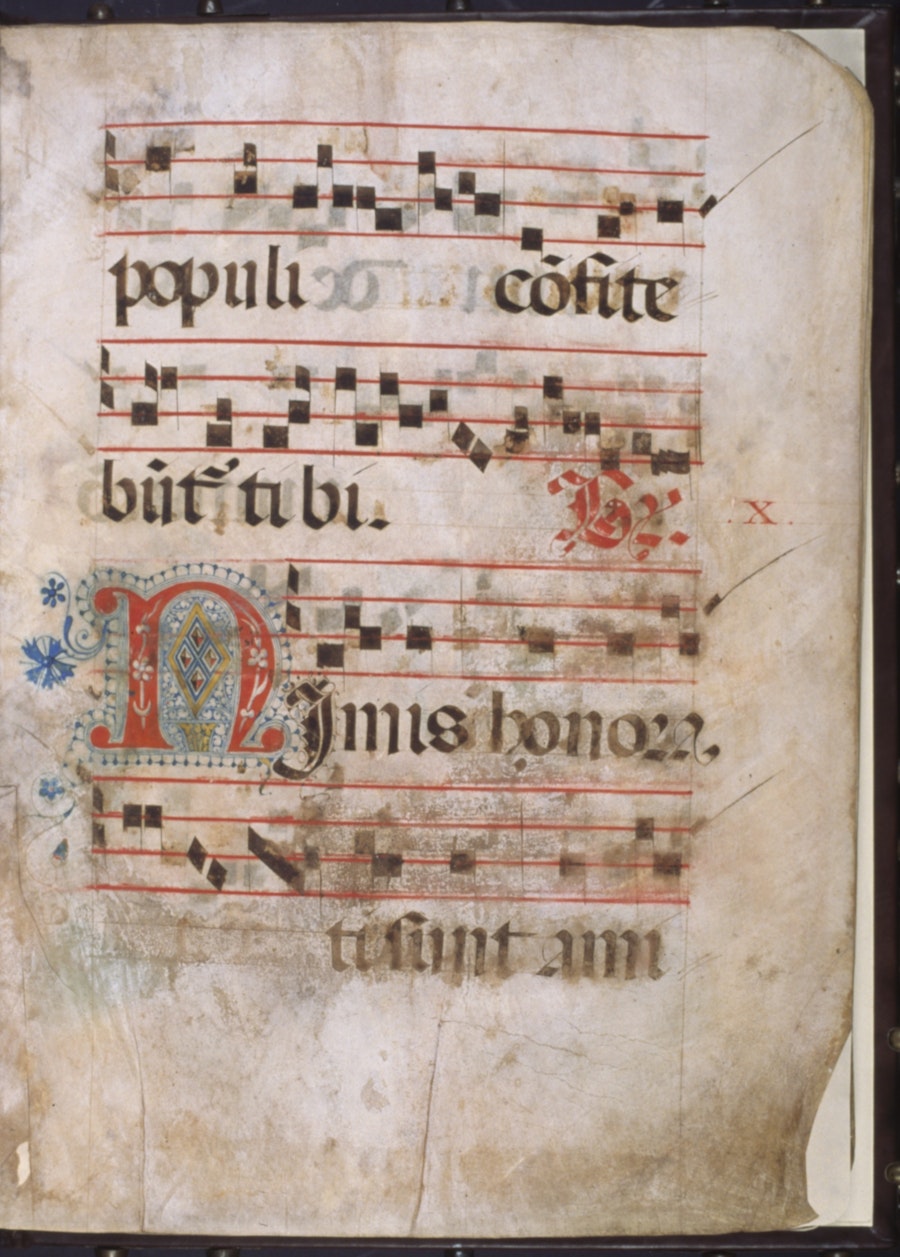 populi cōfite
būt᷑ tibi. ℟. .X.
Nimis honora
ti sunt ami